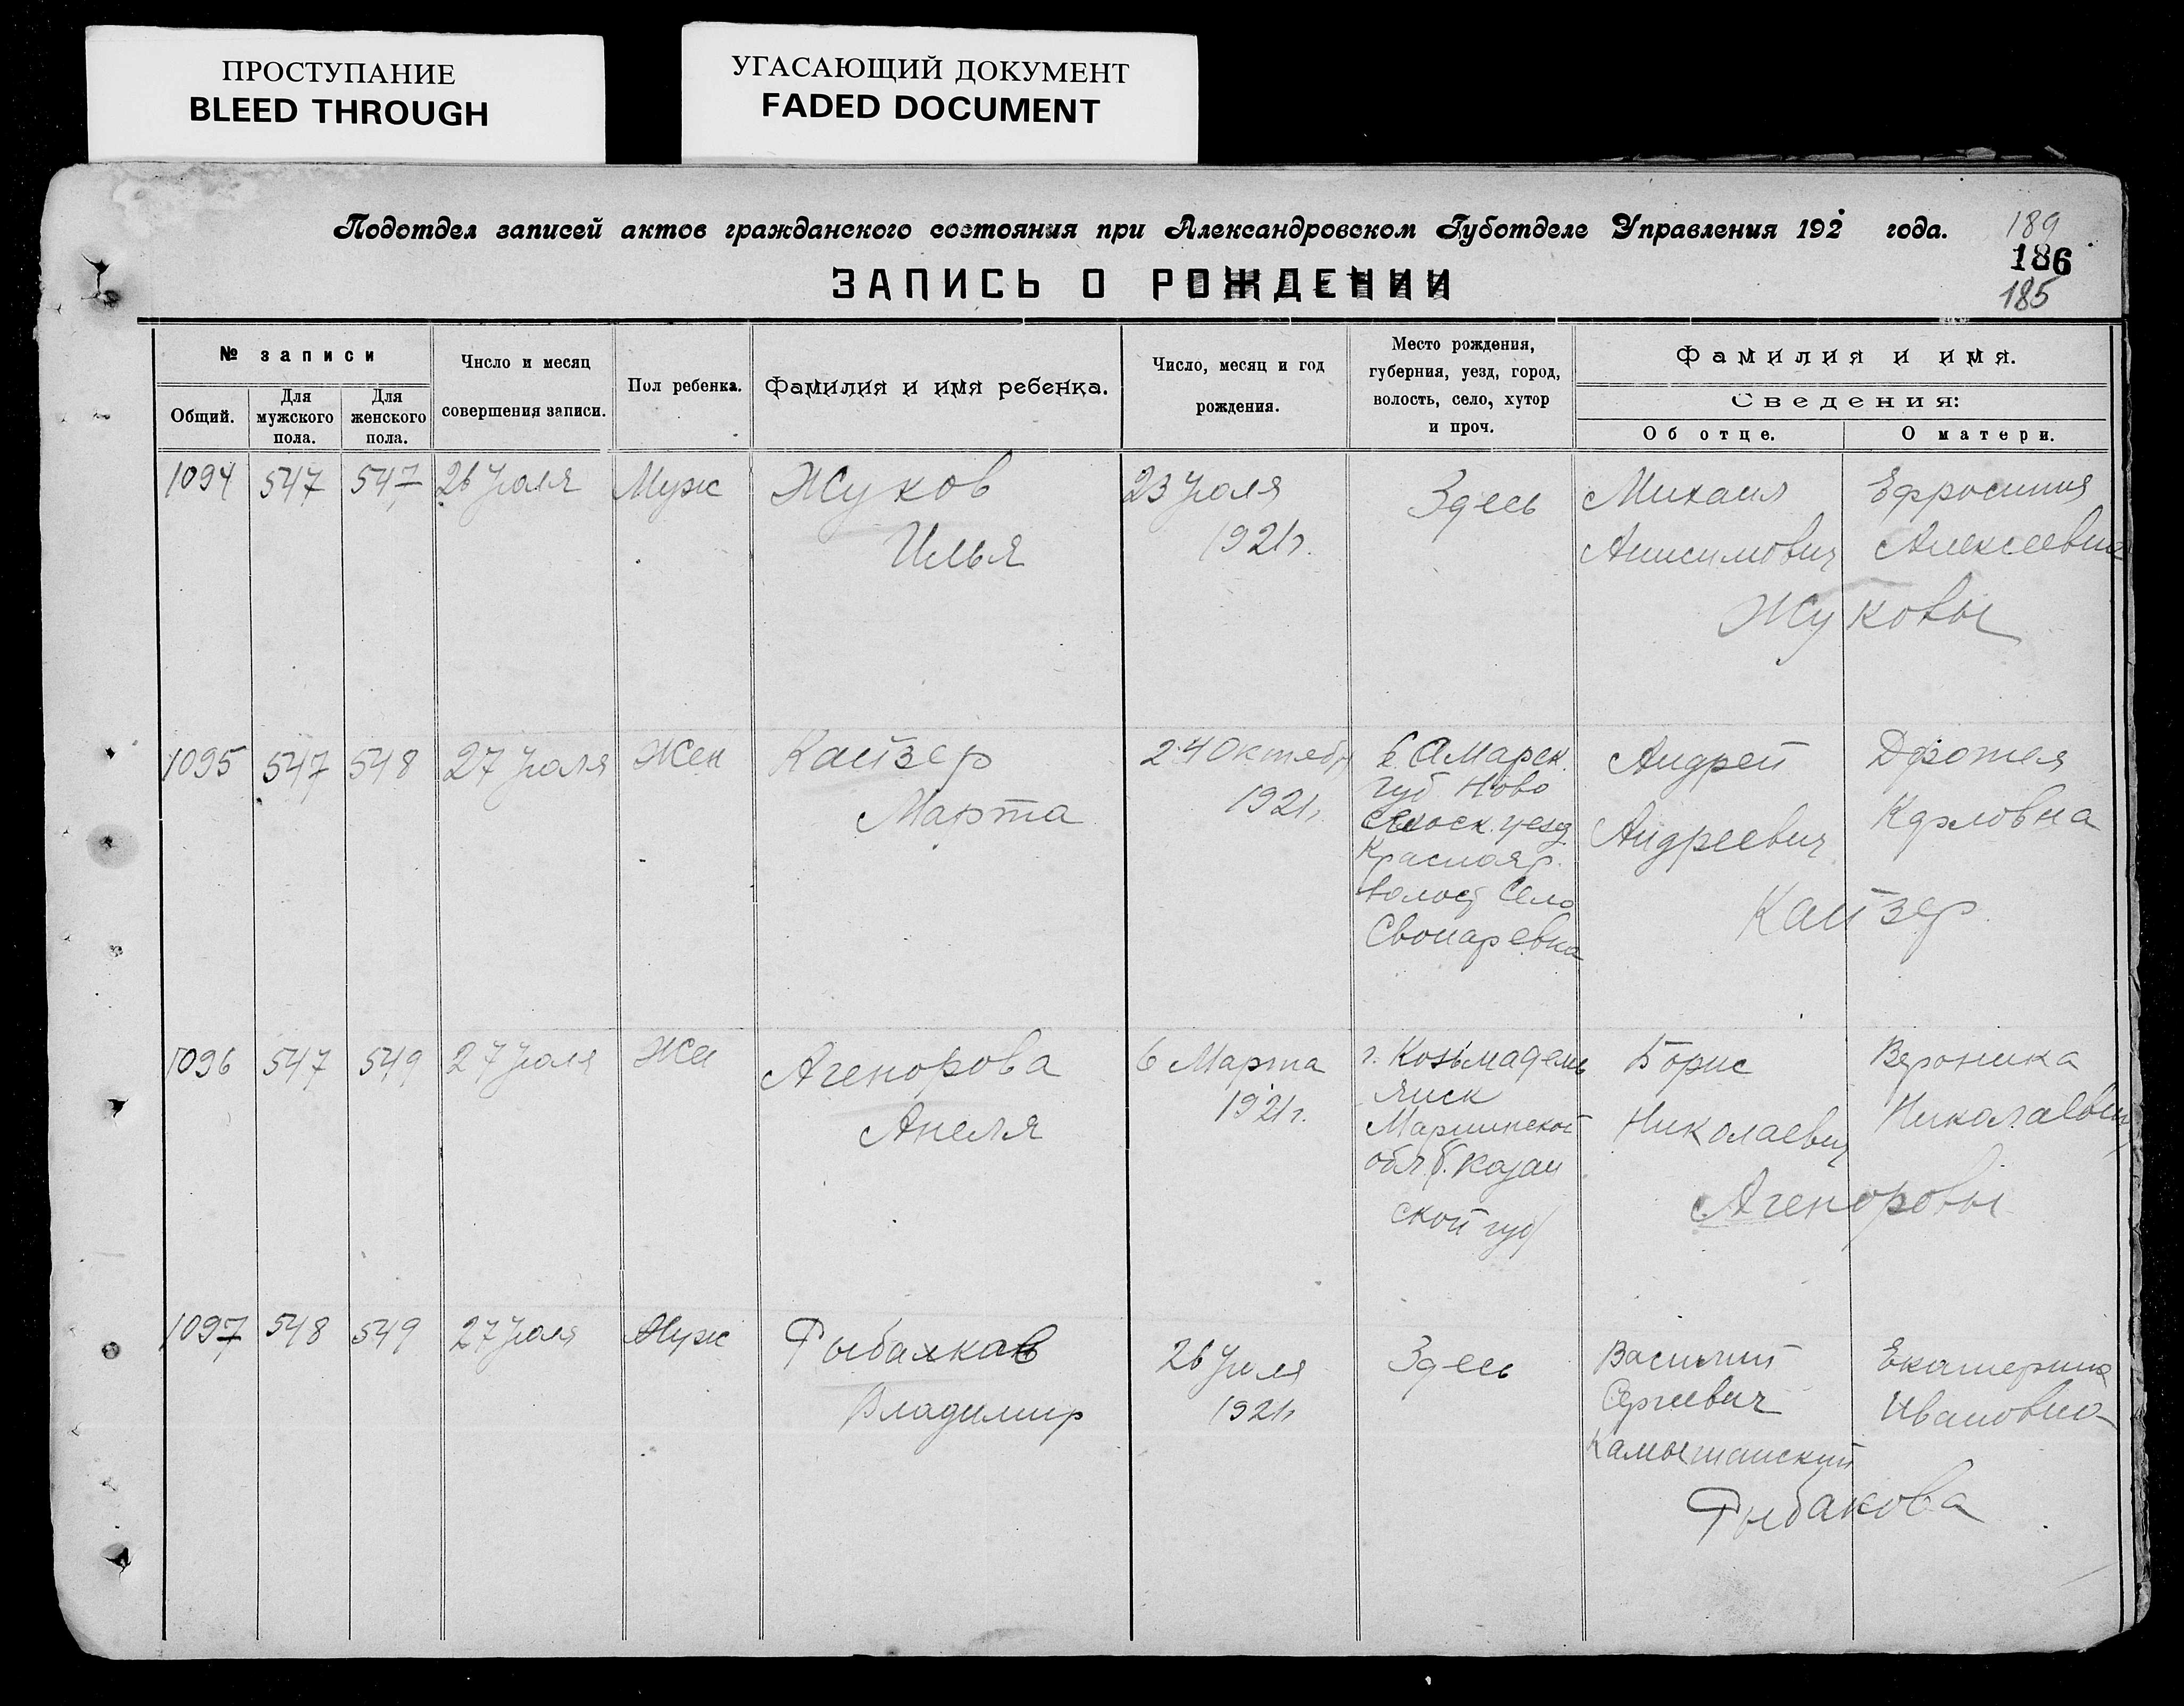 ПРОСТУПАНИЕ
BLEED THROUGH
УГАСАЮЩИЙ ДОКУМЕНТ
FADED DOCUMENT
Подотдел записей актов гражданского состояния при Александровском Губотделе Управления 192 года.
189
186
185
ЗАПИСЬ О РОЖДЕНИИ
№ записи
Общий.
Для мужского пола.
Для женского пола.
Число и месяц
совершения записи.
Пол ребенка.
Фамилия и имя ребенка.
Число, месяц и год
рождения.
Место рождения,
губерния, уезд, город,
волость, село, хутор
и проч.
Фамилия и имя.
Сведения:
Об отце.
О матери.
1094 547 547 26 Июля Муж Жуков 23 Июля Здесь Михаил Ефросиния
Илья 1921г. Анисимович Алексеевна
Жуковы
1095 547 548 27 Июля Жен Кайзер 24 Октября Самарск. Андрей
Марта 1921г. губ Ново Андреевич Карловна
уезд
Краснояр.
волост Село
Кайзер
1096 547 549 27 Июля Же Агенорова 6 Марта г. Козьмадемь Борис Вероника
Анеля 1921г. янск Николаевич Николаевна
обл б. Казан
ской губ
Агеноровы
1097 548 549 27 Июля Муж 26 Июля Здесь Василий Екатерина
Владимир 1921г Сергеевич Ивановна
Камышанский
Рыбакова